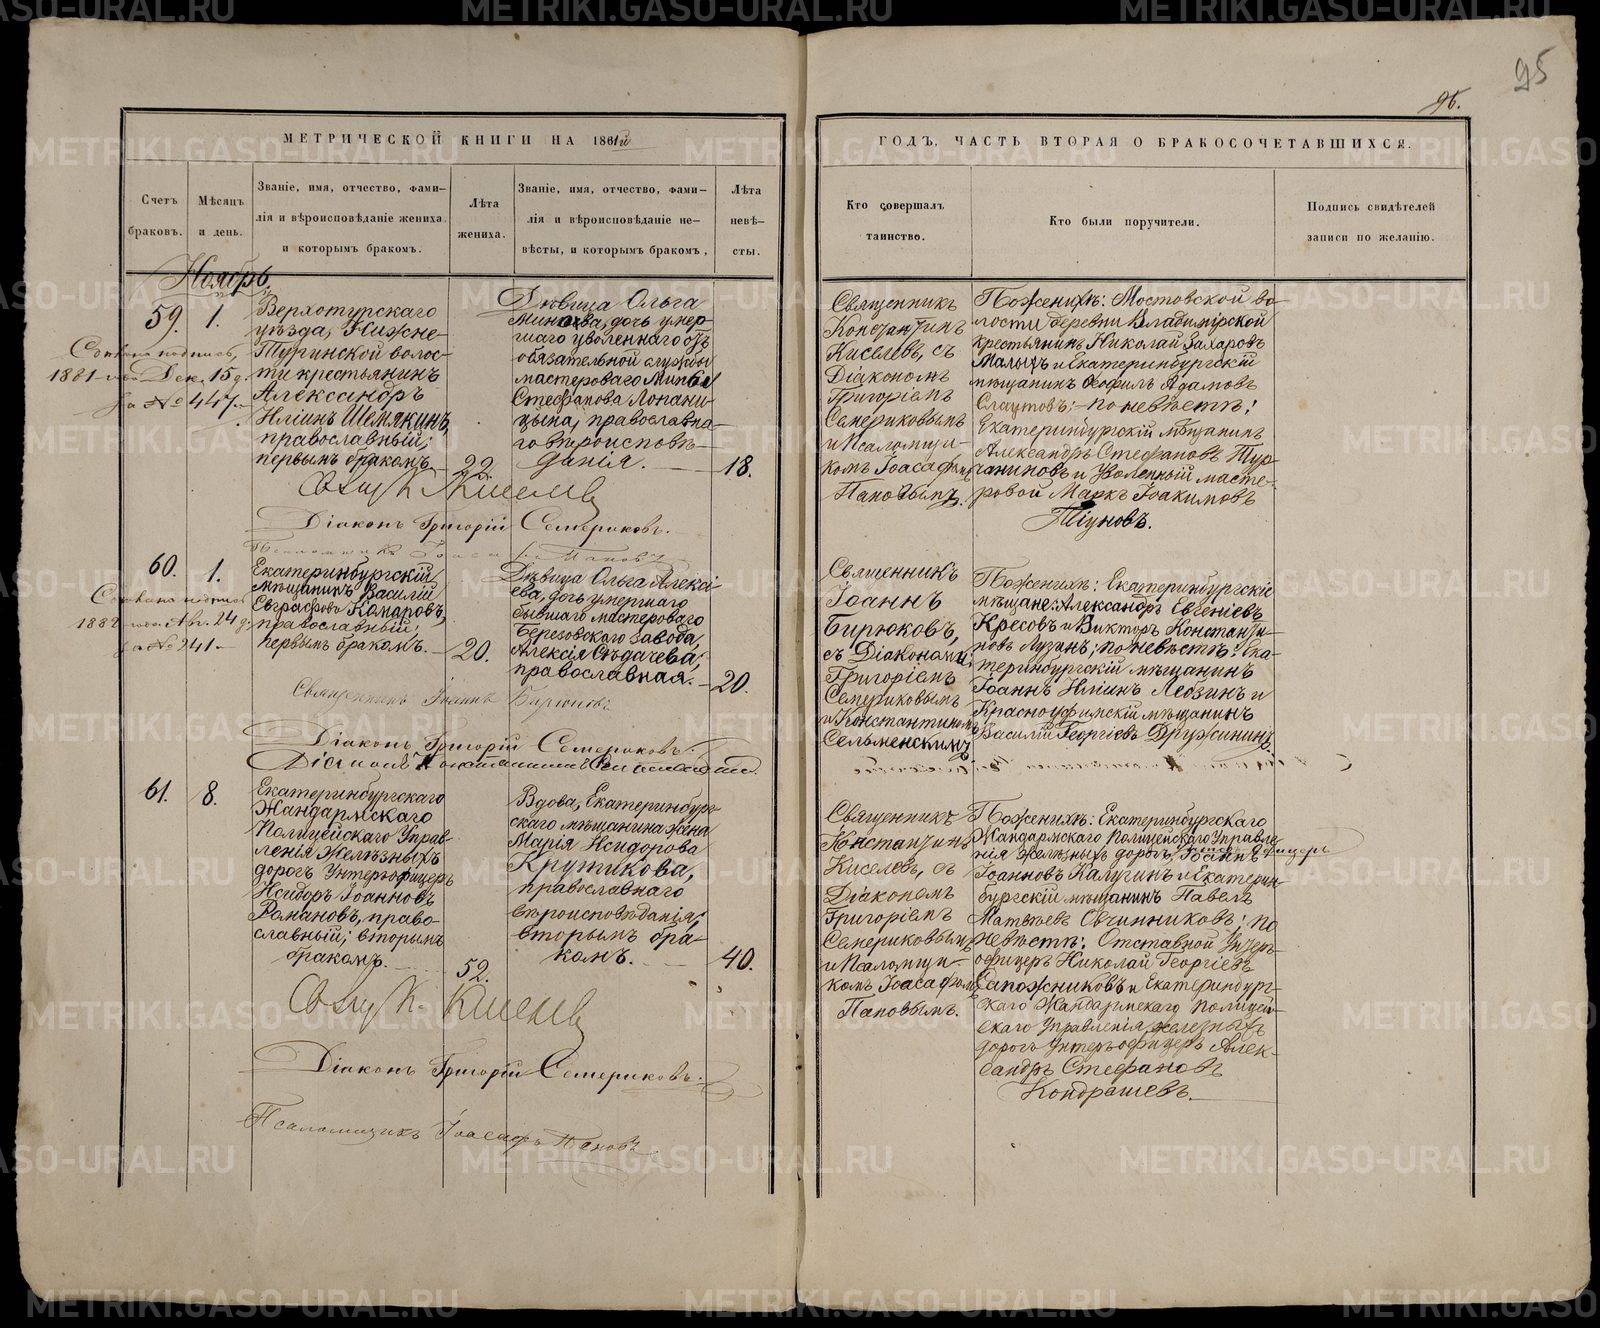 95
96.
МЕТРИЧЕСКОЙ КНИГИ НА 1881й
ГОДЪ, ЧАСТЬ ВТОРАЯ О БРАКОСОЧЕТАВШИХСЯ.
Счетъ
браковъ.
Мѣсяцъ
и день.
Званіе, имя, отчество, фами-
лія и вѣроисповѣданіе жениха.
и которымъ бракомъ.
Лѣта
жениха.
Званіе, имя, отчество, фами-
лія и вѣроисповѣданіе не-
вѣсты, и которымъ бракомъ,
Лѣта
невѣ-
сты.
Кто совершалъ
таинство.
Кто были поручители.
Подпись свидѣтелей
записи по желанію.
Ноябрь.
59.
1.
1881 Дек. 15 д.
за № 447
Верхотурскаго
уѣзда, Нижне-
Туринской волос-
ти крестьянинъ
Александръ
Иліинъ Шемякинъ,
православный;
первымъ бракомъ
22.
Дѣвица Ольга
Минаева, дочь умер-
шаго уволеннаго отъ
обязательной службы
мастероваго Минея
Стефанова Лопани-
цына, православна-
го вѣроисповѣ-
данія.
18.
Священникъ
Константинъ
Киселевъ, съ
Діакономъ
Григоріемъ
Семериковымъ
и Псаломщи-
комъ Іоасафомъ
Пановымъ.
По женихѣ: Мостовской во-
лости деревни Владимірской
крестьянинъ Николай Захаровъ
Малыхъ и Екатеринбургскій
мѣщанинъ Ѳеофилъ Адамовъ
Слаутовъ; – по невѣстѣ:
Екатеринбургскій мѣщанинъ
Александръ Стефановъ Тур-
чаниновъ и Уволенный масте-
ровой Маркъ Іоакимовъ
Тіуновъ.
Свящ К. Киселевъ
Діаконъ Григорій Семериковъ.
Псаломщикъ Іоасафъ Пановъ
60.
1.
1882 Авг. 24 д.
за № 241
Екатеринбургскій
мѣщанинъ Василій
Евграфовъ Комаровъ,
православный;
первымъ бракомъ.
20.
Дѣвица Ольга Алексі-
ева, дочь умершаго
бывшаго мастероваго
Березовскаго завода,
Алексія Сѣдачева;
православная.
20.
Священникъ
Іоаннъ
Бирюковъ,
съ Діаконами;
Григоріемъ
Семериковымъ
и Константиномъ
Сельменскимъ
По женихѣ: Екатеринбургскіе
мѣщане: Александръ Евгеніевъ
Кресовъ и Викторъ Константи-
новъ Лузинъ; по невѣстѣ: Ека-
теринбургскій мѣщанинъ
Іоаннъ Иліинъ Лебзинъ и
Красноуфимскій мѣщанинъ
Василій Георгіевъ Дружининъ.
Священникъ Іоаннъ Бирюковъ
Діаконъ Григорій Семериковъ.
61.
8.
Екатеринбургскаго
Жандармскаго
Полицейскаго Управ-
ленія Желѣзныхъ
дорогъ Унтерофицеръ
Исидоръ Іоанновъ
Романовъ, право-
славный; вторымъ
бракомъ.
52.
Вдова, Екатеринбург-
скаго мѣщанина жена
Марія Исидорова
Крутикова,
православнаго
вѣроисповѣданія;
вторымъ бра-
комъ.
40.
Священникъ
Константинъ
Киселевъ, съ
Діакономъ
Григоріемъ
Семериковымъ
и Псаломщи-
комъ Іоасафомъ
Пановымъ.
По женихѣ: Екатеринбургскаго
Жандармскаго Полицейскаго Управле-
нія желѣзныхъ дорогъ, Унтеръ-Офицеръ Іоаннъ
Іоанновъ Калугинъ и Екатерин-
бургскій мѣщанинъ Павелъ
Матвѣевъ Овчинниковъ; по
невѣстѣ: Отставной Унтеръ-
офицеръ Николай Георгіевъ
Сапожниковъ и Екатеринбург-
скаго Жандармскаго Полицей-
скаго Управленія железныхъ
дорогъ Унтеръ-офицеръ Алек-
сандръ Стефановъ
Кондрашевъ.
Свящ К. Киселевъ
Діаконъ Григорій Семериковъ.
Псаломщикъ Іоасафъ Пановъ
METRIKI.GASO-URAL.RU